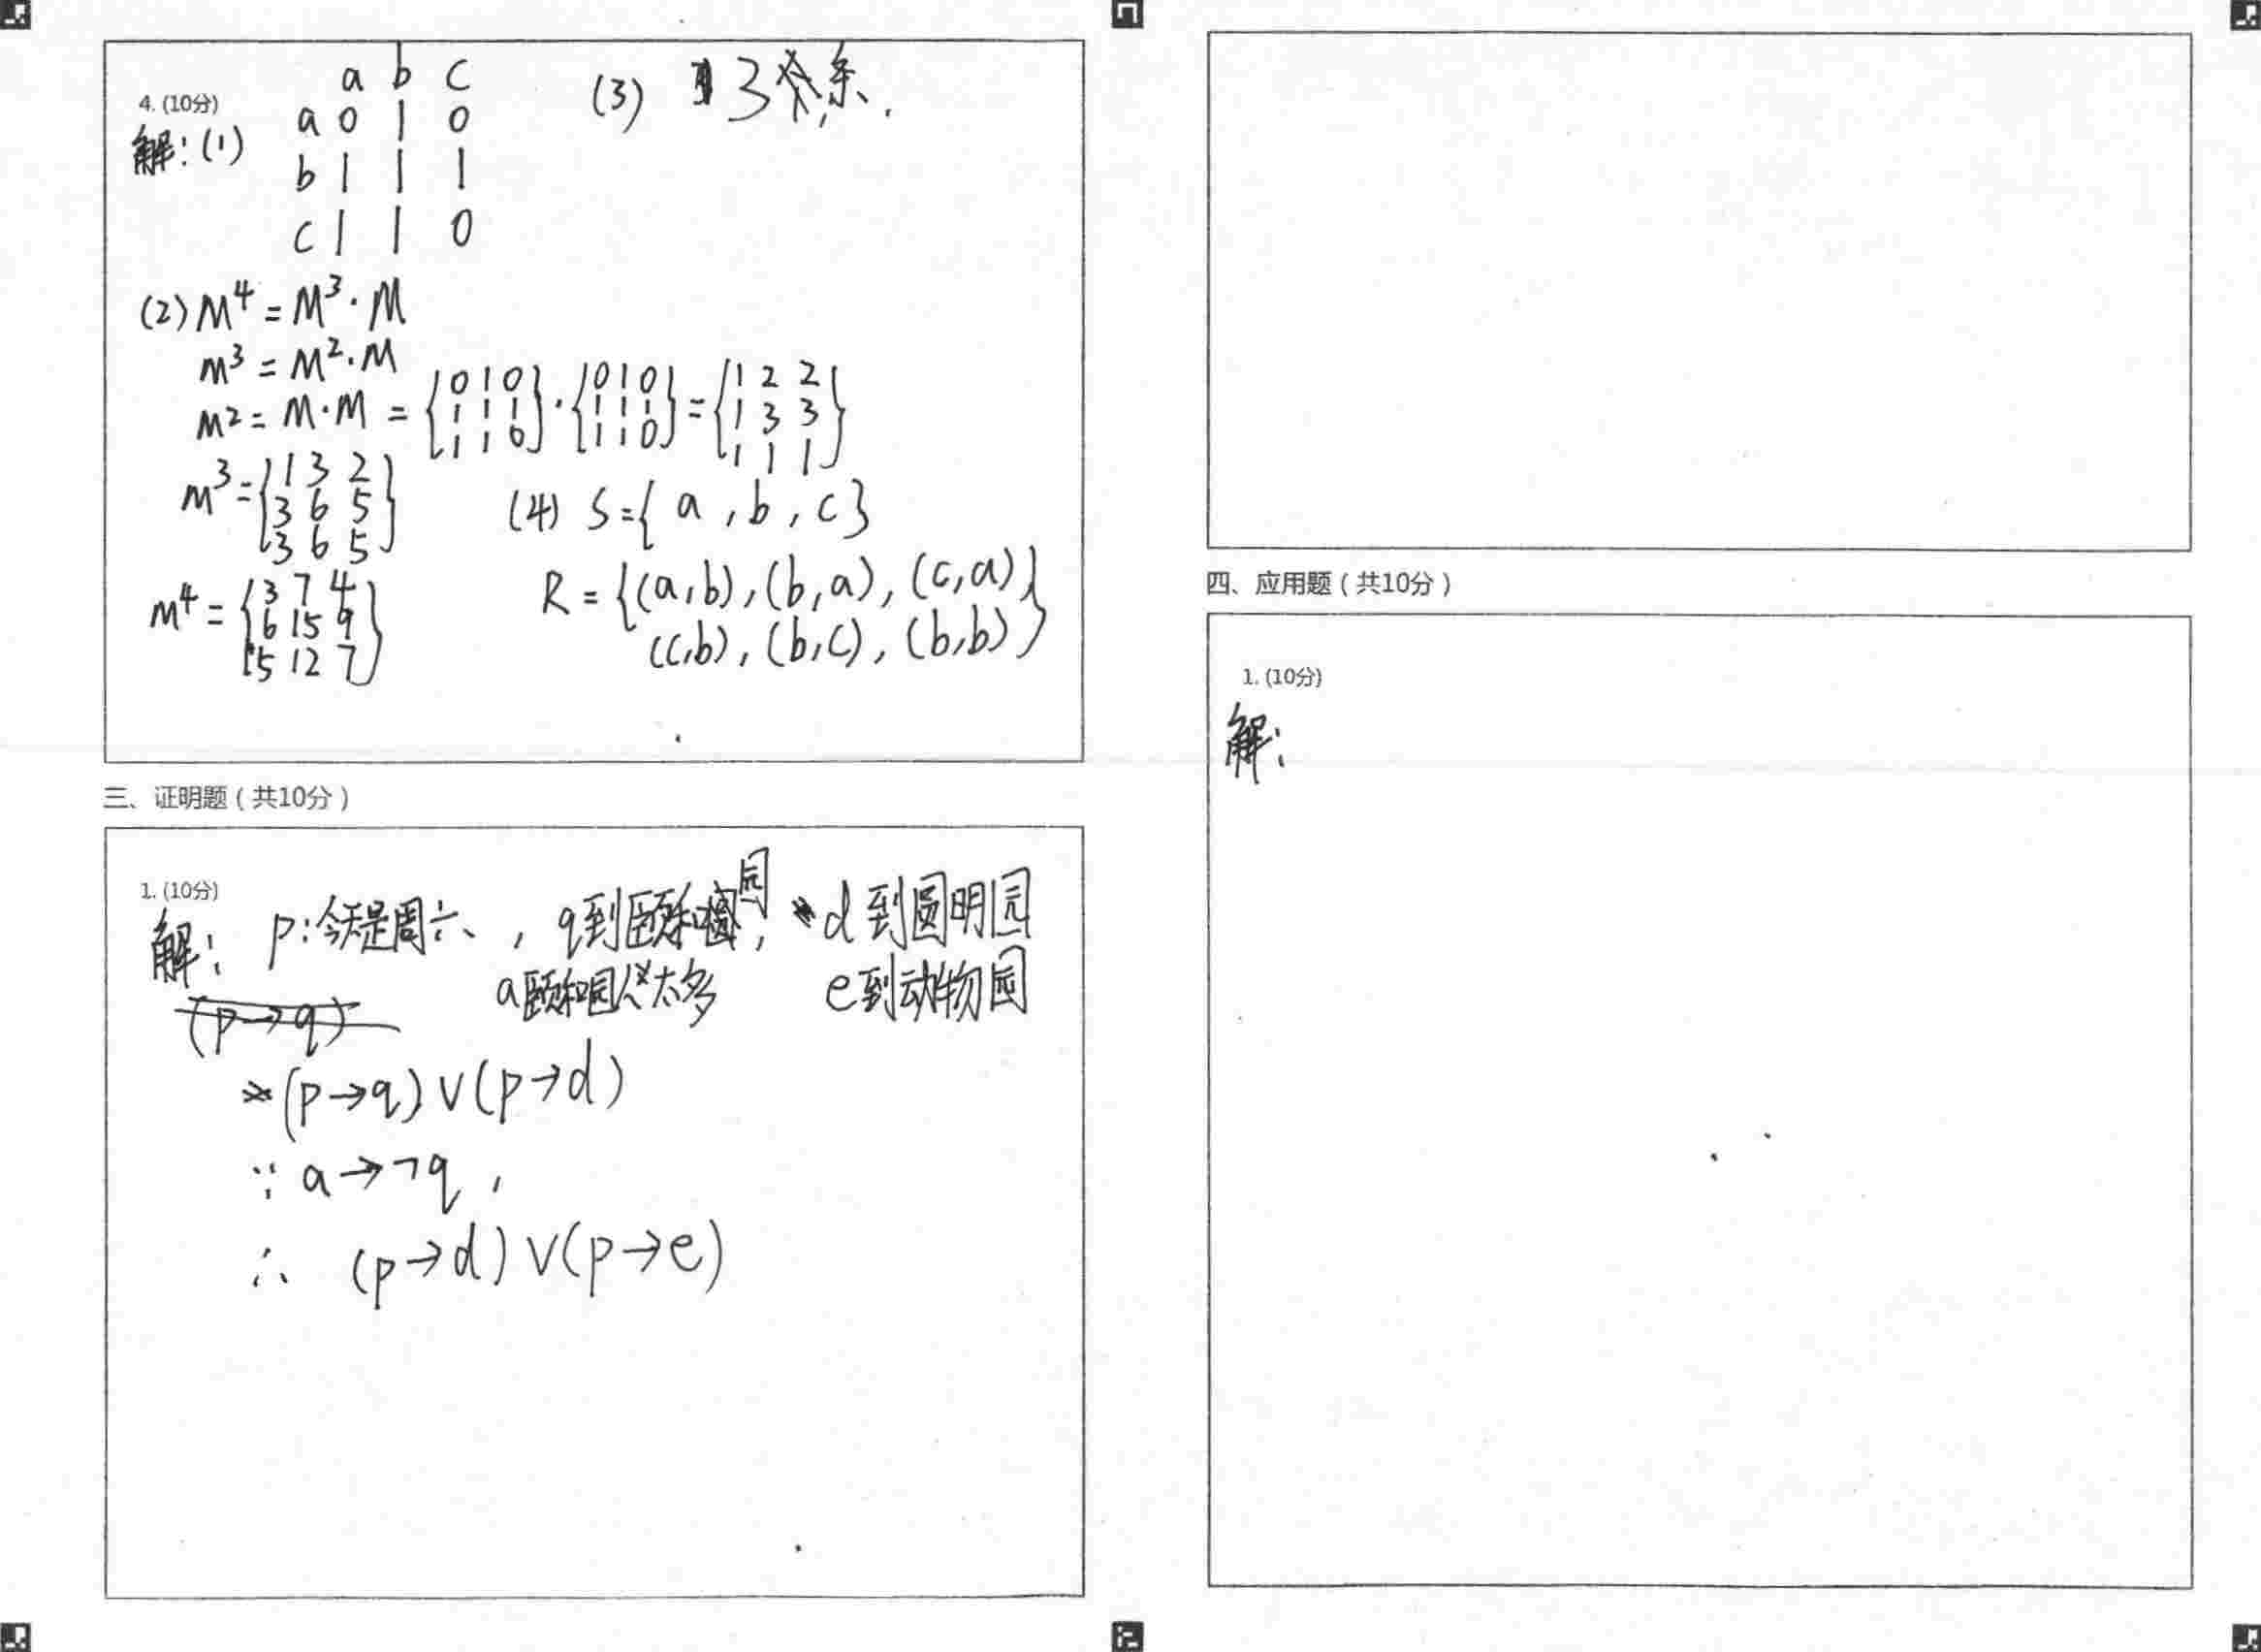 4. (10分)
解: (1)
a b c
a 0 1 0
b 1 1 1
c 1 1 0
(2) M⁴ = M³·M
m³ = M²·M
M² = M·M = {0 1 0
1 1 1
1 1 0} · {0 1 0
1 1 1
1 1 0} = {1 2 2
1 3 3
1 1 1}
m³ = {1 3 2
3 6 5
3 6 5}
m⁴ = {3 7 4
6 15 9
5 12 7}
(3) 3条.
(4) S={a, b, c}
R = {(a,b), (b,a), (c,a)
(c,b), (b,c), (b,b)}
三、证明题（共10分）
1. (10分)
解: p:今天是周六, q到颐和园, d到圆明园
a颐和园人太多 e到动物园
(p→q)
(p→q)∨(p→d)
∵ a→¬q,
∴ (p→d)∨(p→e)
四、应用题（共10分）
1. (10分)
解: